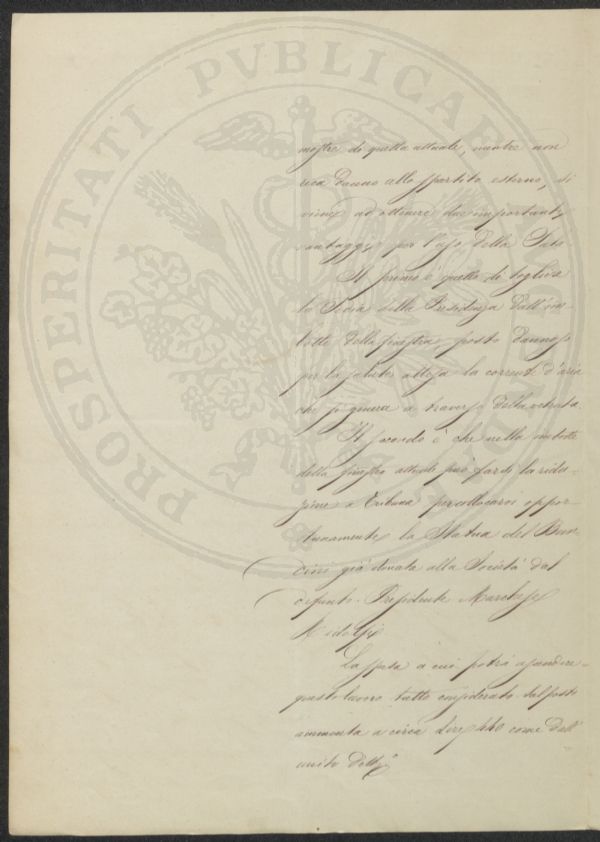 PROSPERITATI PVBLICAE
nostre di quella attuale, mentre non
reca danno allo spartito esterno, si
viene ad ottenere due importanti
vantaggi per l'uso della Sala
Il primo è quello di togliere
la Sedia della Presidenza dall'im-
botte della finestra, posto dannoso
per la salute attesa la corrente d'aria
che si genera a traverso della vetrata.
Il secondo è che nella imbotte
della finestra attuale può farsi la ridu-
zione a Tribuna per collocarvi oppor-
tunamente la Statua del Ban-
dini già donata alla Società dal
defunto Presidente Marchese
Ridolfi
La spesa a cui potrà ascendere
questo lavoro tutto considerato dal posto
ammonta a circa Lire 440 come dall'
unito